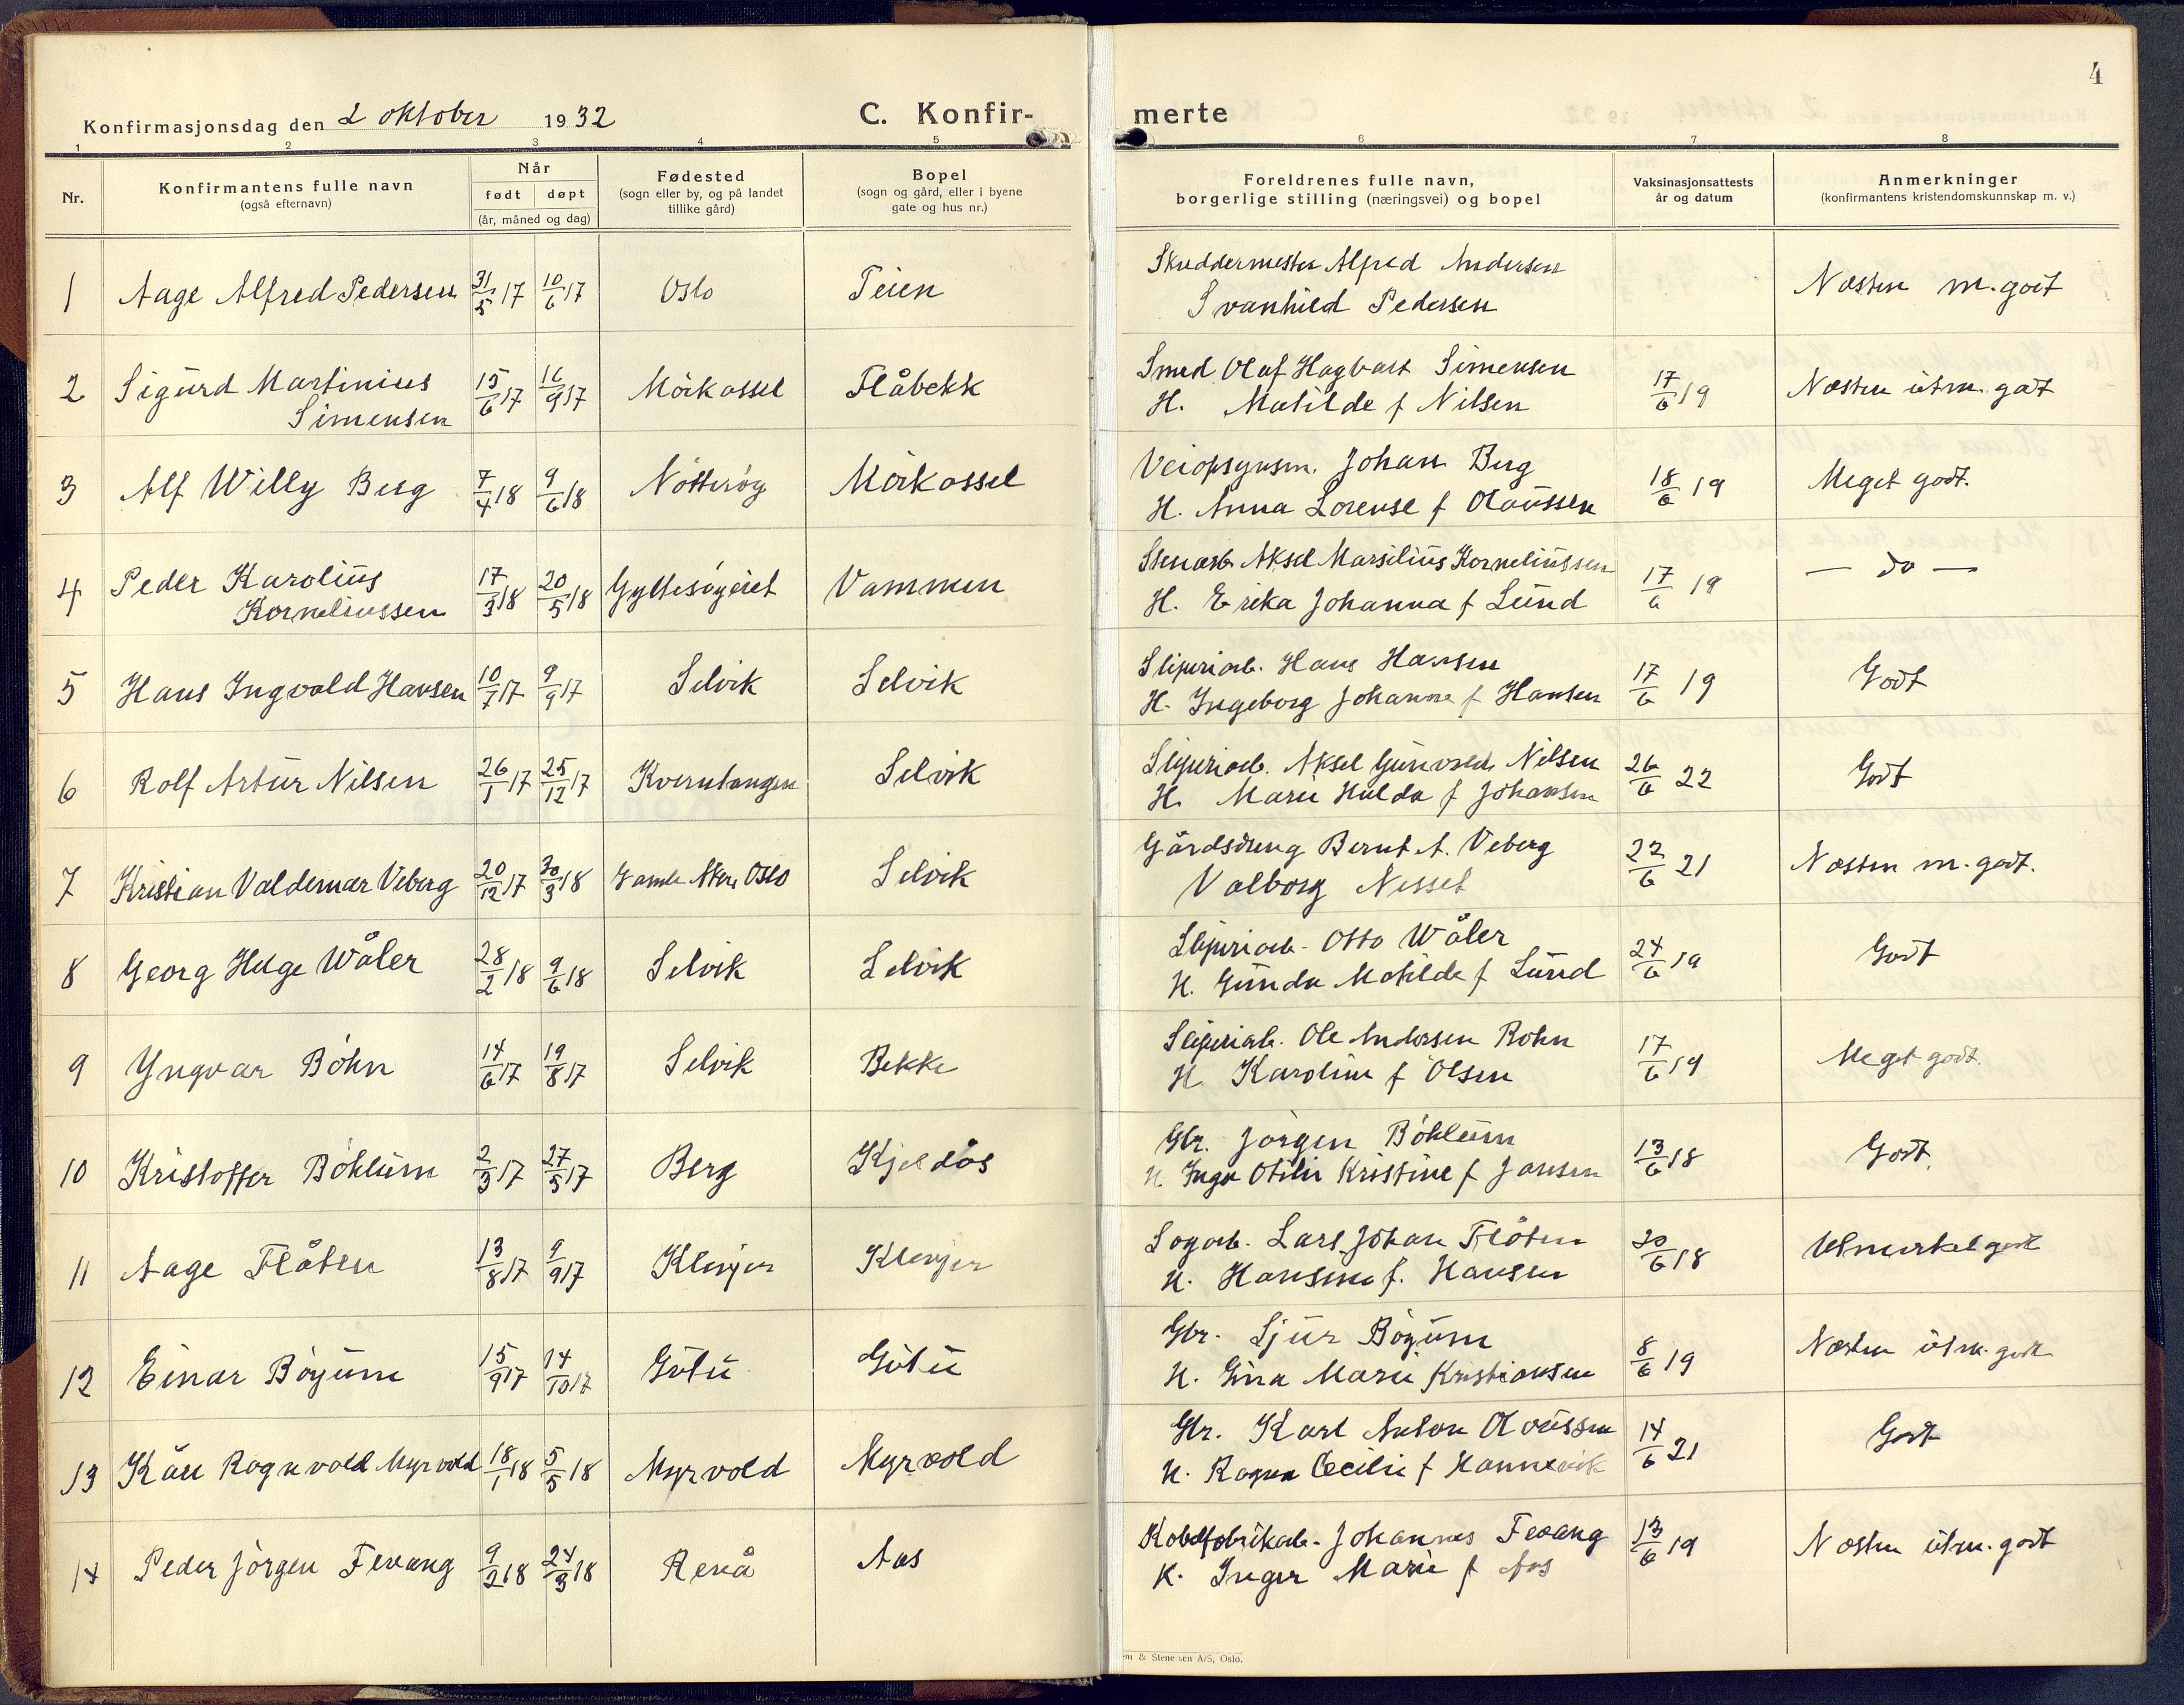 4
Konfirmasjonsdag den 2 oktober 1932 C. Konfir- merte
1 2 3 4 5 6 7 8
Nr. Konfirmantens fulle navn (også efternavn) Når født døpt (år, måned og dag) Fødested (sogn eller by, og på landet tillike gård) Bopel (sogn og gård, eller i byene gate og hus nr.) Foreldrenes fulle navn, borgerlige stilling (næringsvei) og bopel Vaksinasjonsattests år og datum Anmerkninger (konfirmantens kristendomskunnskap m. v.)
1 Aage Alfred Pedersen 31/5 17 10/6 17 Oslo Teien Skreddermester Alfred Andersen Næsten m. godt
Svanhild Pedersen
2 Sigurd Martinius 15/6 17 16/9 17 Mörkassel Flåbekk Smed Olaf Hagbart Simensen 17/6 19 Næsten utm. godt
Simensen H. Matilde f Nilsen
3 Alf Willy Berg 7/4 18 9/6 18 Nötteröy Mörkassel Veiopsynsm. Johan Berg 18/6 19 Meget godt.
H. Anna Lorense f Olaussen
4 Peder Karolius 17/3 18 20/5 18 Vammen Stenarb. Aksel Marsilius Korneliussen 17/6 19 — do —
Korneliussen H. Erika Johanna f Lund
5 Hans Ingvald Hansen 10/7 17 9/9 17 Selvik Selvik Sliperiarb. Hans Hansen 17/6 19 Godt
H. Ingeborg Johanne f Hansen
6 Rolf Artur Nilsen 26/1 17 25/12 17 Kverntangen Selvik Sliperiarb. Aksel Gunvald Nilsen 26/6 22 Godt
H. Marie Hulda f Johansen
7 Kristian Valdemar Veberg 20/12 17 30/3 18 Gamle Aker, Oslo Selvik Gårdsdreng Bernt A. Veberg 22/6 21 Næsten m. godt.
Valborg Nesset
8 Georg Helge Wåler 28/2 18 9/6 18 Selvik Selvik Sliperiarb. Otto Wåler 24/6 19 Godt
H. Gunda Matilde f Lund
9 Yngvar Böhn 14/6 17 19/8 17 Selvik Bekke Sliperiarb. Ole Andersen Böhn 17/6 19 Meget godt.
H. Karoline f Olsen
10 Kristoffer Böhlum 2/3 17 27/5 17 Berg Kjeldås Gbr. Jörgen Böhlum 13/6 18 Godt.
H. Inga Otilie Kristine f Jansen
11 Aage Flåten 13/8 17 9/9 17 Klevjer Klevjer Sagarb. Lars Johan Flåten 20/6 18 Utmerket godt
H. Hansine f. Hansen
12 Einar Böyum 15/9 17 14/10 17 Götu Götu Gbr. Sjur Böyum 8/6 19 Næsten utm. godt
H. Gina Marie Kristiansen
13 Kåre Ragnvald Myrvold 18/1 18 5/5 18 Myrvold Myrvold Gbr. Karl Anton Olaussen 14/6 21 Godt
H. Ragna Cecilie f Hannevik
14 Peder Jörgen Fevang 9/2 18 24/3 18 Revå Aas Kobelfabrikarb. Johannes Fevang 13/6 19 Næsten utm. godt
H. Inger Marie f Aas
m & Stenersen A/S, Oslo.